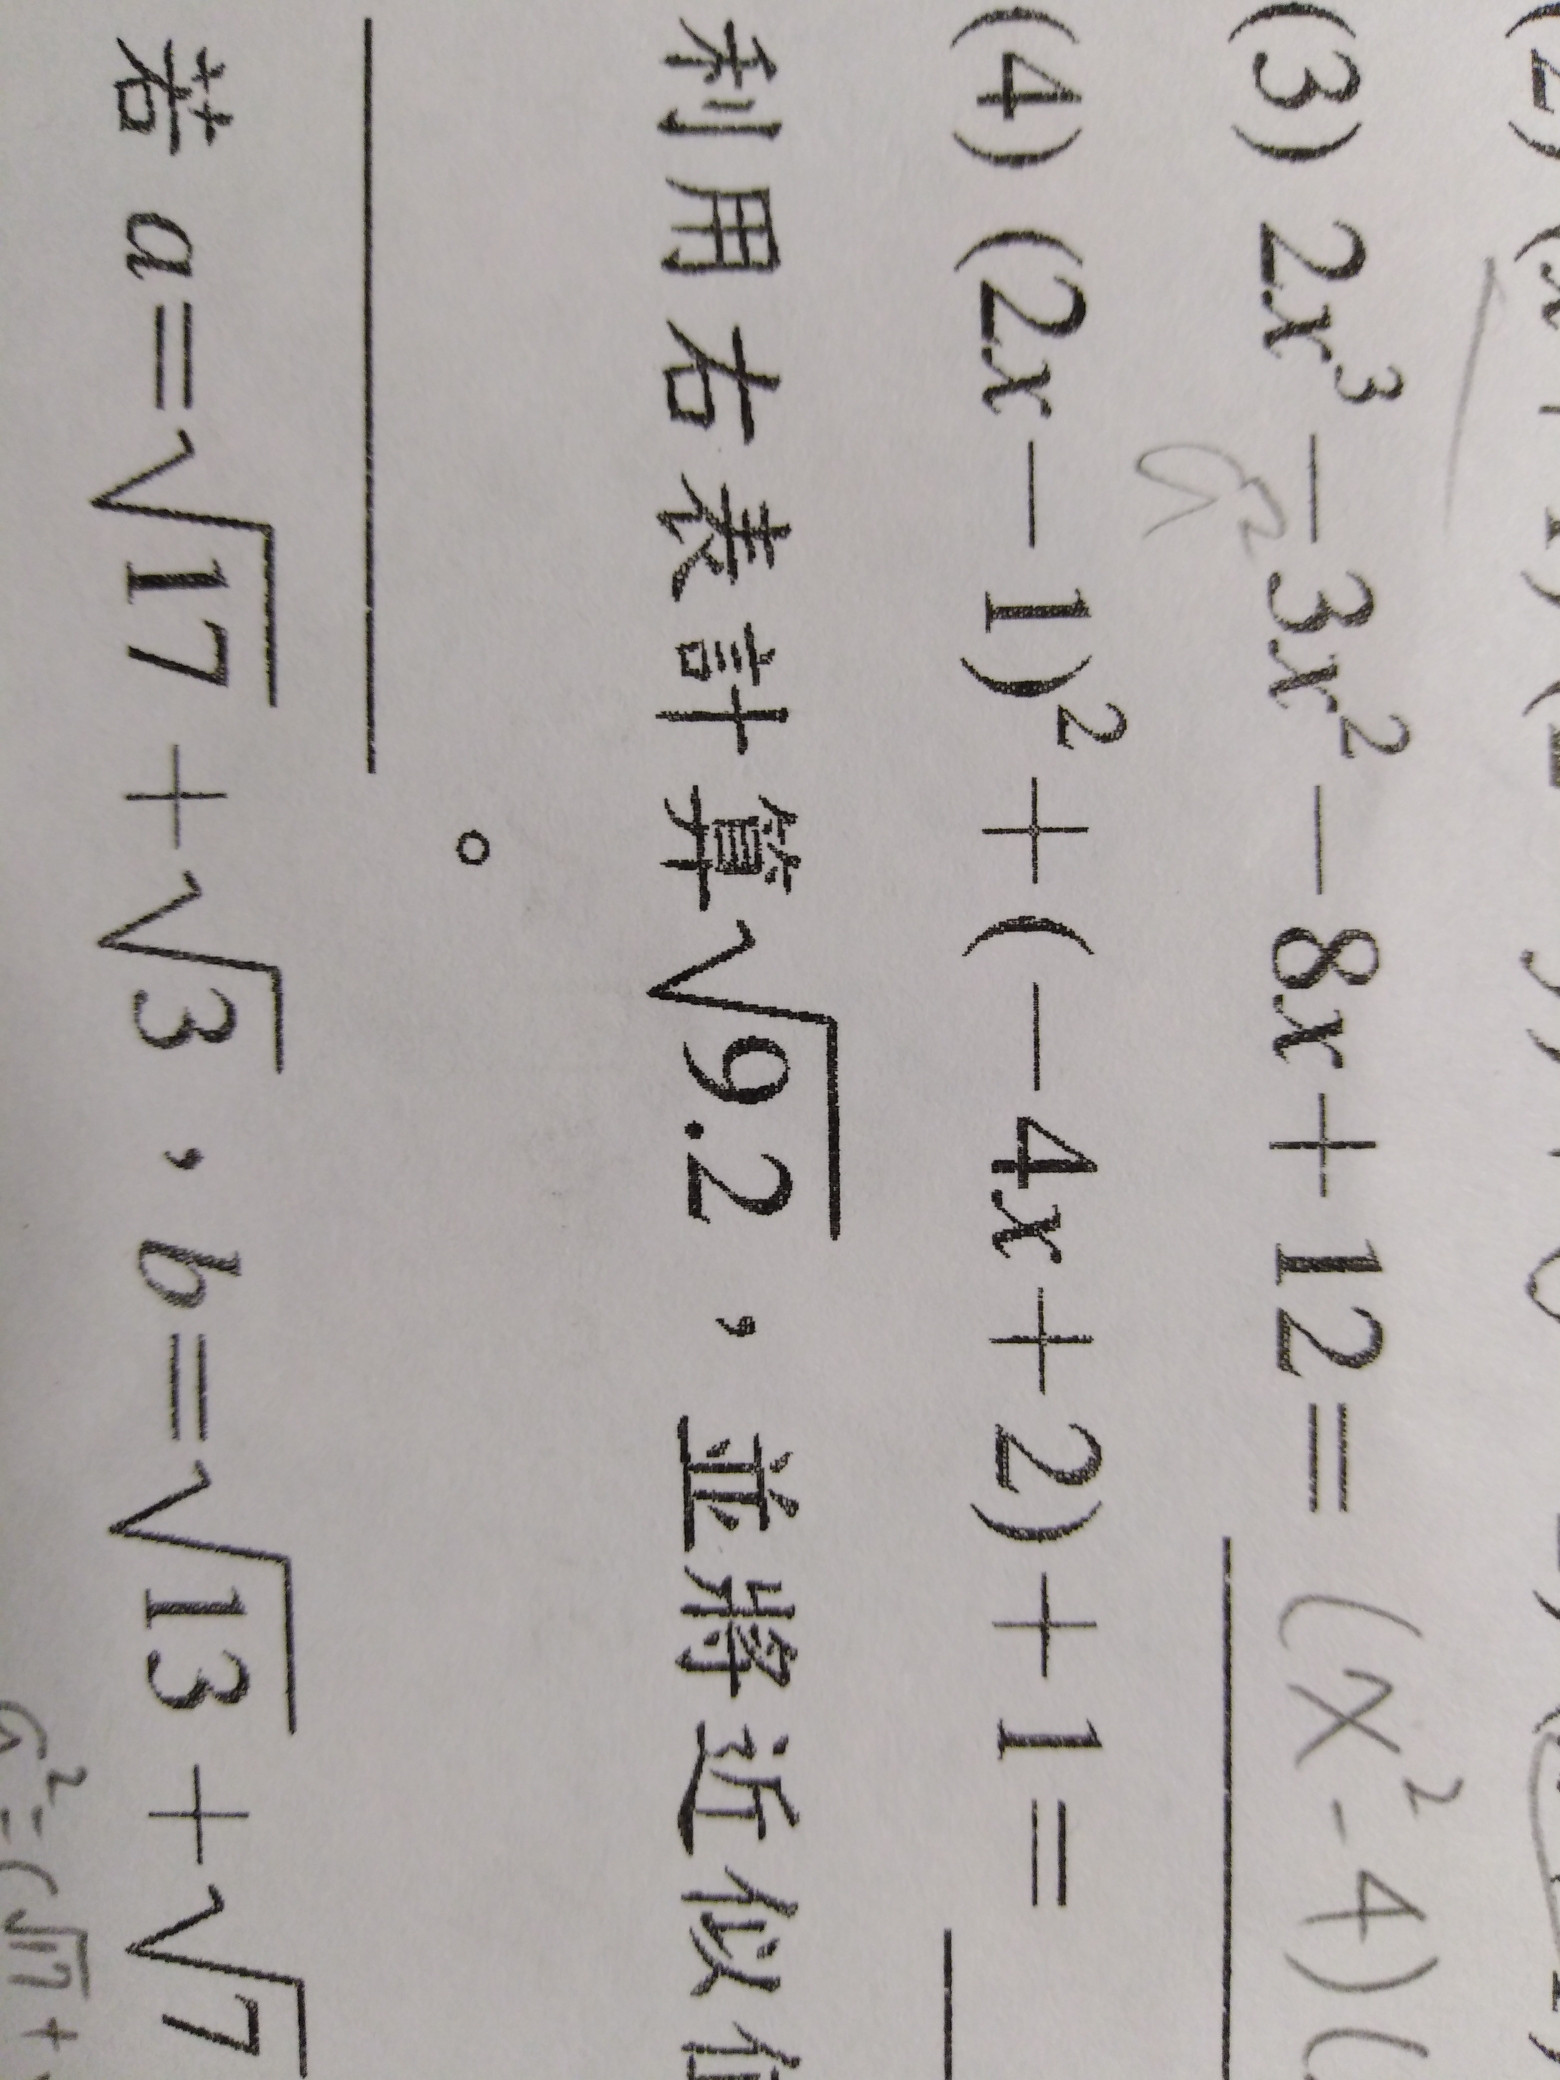 (3) 2x³－3x²－8x＋12＝ (x²-4)(
(4) (2x－1)²＋(－4x＋2)＋1＝
利用右表計算√9.2，並將近似
。
若 a＝√17＋√3，b＝√13＋√7
a²=(√17+